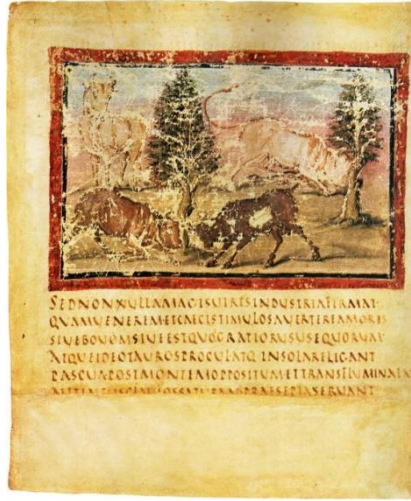 SEDNONVLLAMAGISVIRESINDVSTRIAFIRMAT
QVAMVENEREMETCAECISTIMVLOSAVERTEREAMORIS
SIVEBOVOMSIVEESTQVOGRATIORVSVSEQVORVM
ATQVEIDEOTAVROSPROCVLATQ INSOLARELIGANT
PASCVAPOSTMONTEMOPPOSITVMETTRANSFLVMINALATA
SERVANT